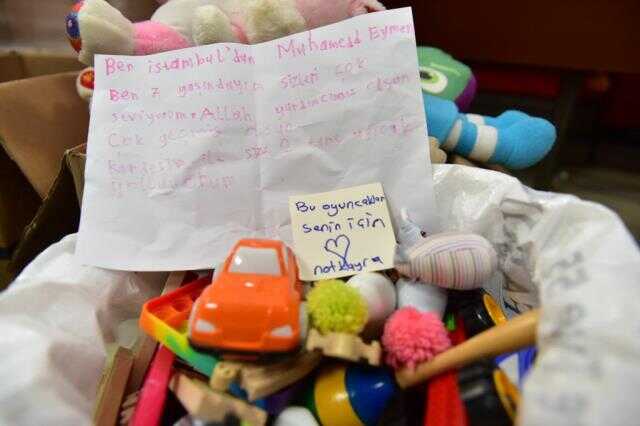 Ben istanbul'dan Muhamedd Eymen
Ben 7 yasındayım sizleri çok
seviyorum. Allah yardımcınız olsun
Çok geçmiş olsun
kardeşim ile size
yolluyorum
Bu oyuncaklar
senin için
not: Kayra